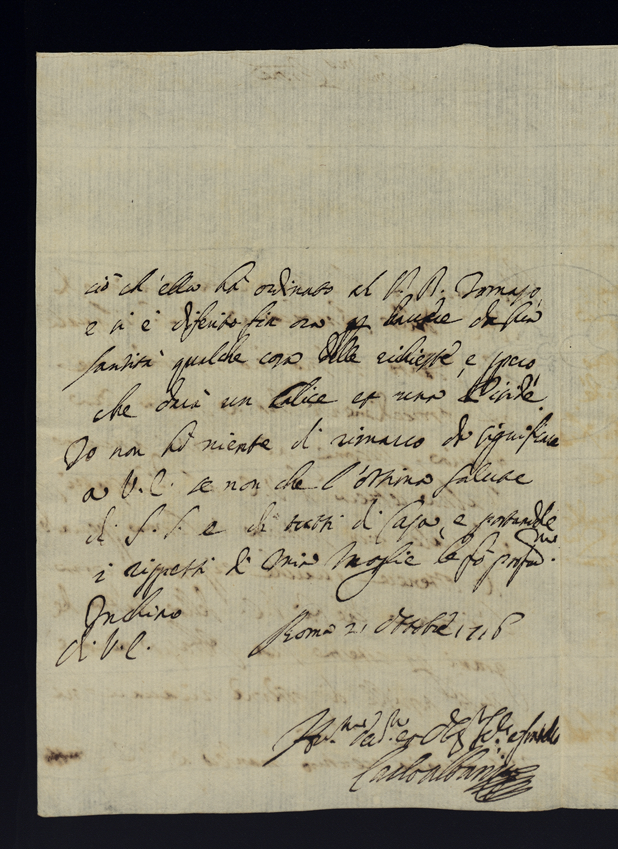 ciò ch'ella hà ordinato al P. R. Tomaso,
e si è diferito fin ora p havere da sua
Santità qualche cosa delle richieste, e spero
che darà un Calice et una Pisside
Io non hò niente di rimarco da significare
a V. E. se non che l'ottima salute
di S. S. e di tutti di Casa, e portandole
i rispetti di mia Moglie le fò profm.
Inchino
di V. E. Roma 21 ottobre 1716
et
Carlo Albani